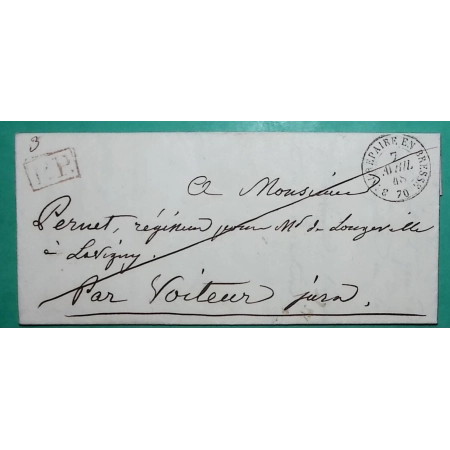 3
P.P.
PIERREPAIRE EN BRESSE
7
AVRIL
68
70
A Monsieur
Pernet, régisseur pour Md de Longeville
à Lavigny.
Par Voiteur jura.